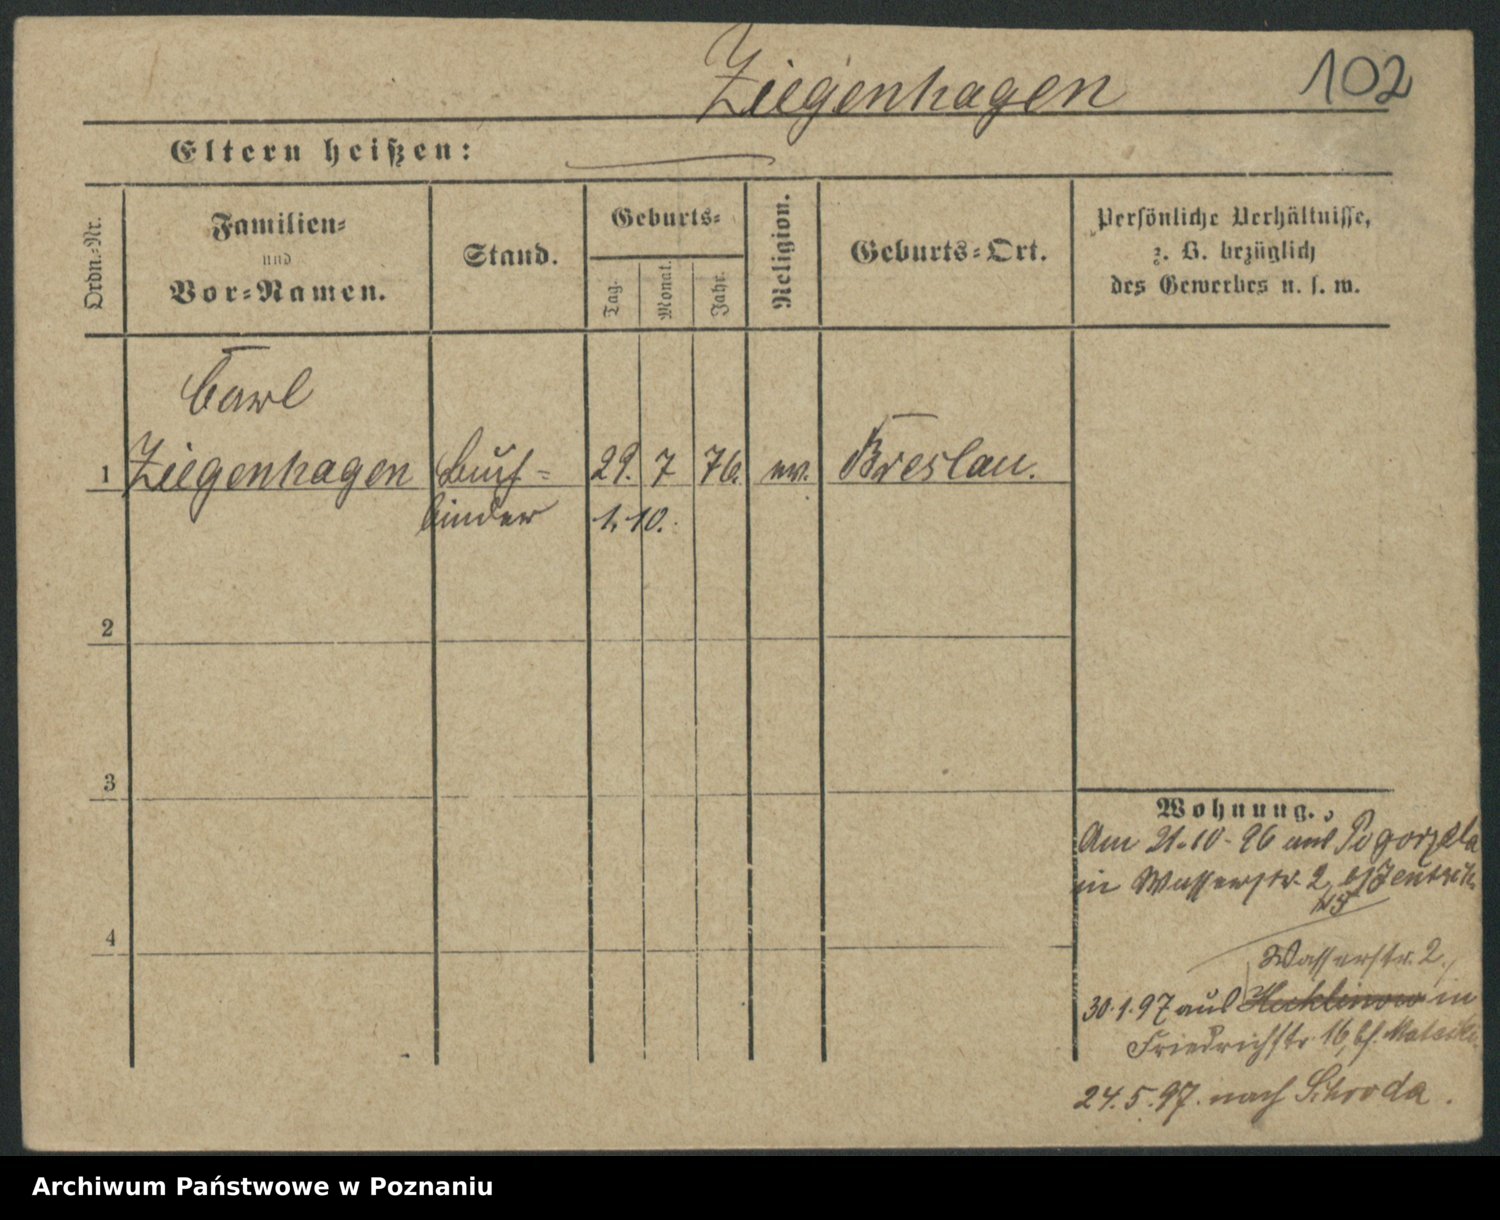 Ziegenhagen
102
Eltern heißen:
Ordn.-Nr.
Familien-
und
Vor-Namen.
Stand.
Geburts-
Tag.
Monat.
Jahr.
Religion.
Geburts-Ort.
Persönliche Verhältnisse,
z. B. bezüglich
des Gewerbes u. s. w.
Carl
1 Ziegenhagen Buch- 29. 7 76. ev. Breslau.
binder 1. 10.
2
3
4
Wohnung.
Am 21.10.96 aus Pogorzela
in Wasserstr. 2, b/
Wasserstr. 2,
30.1.97 aus in
Friedrichstr. 16, bei
24.5.97. nach Schroda.
Archiwum Państwowe w Poznaniu